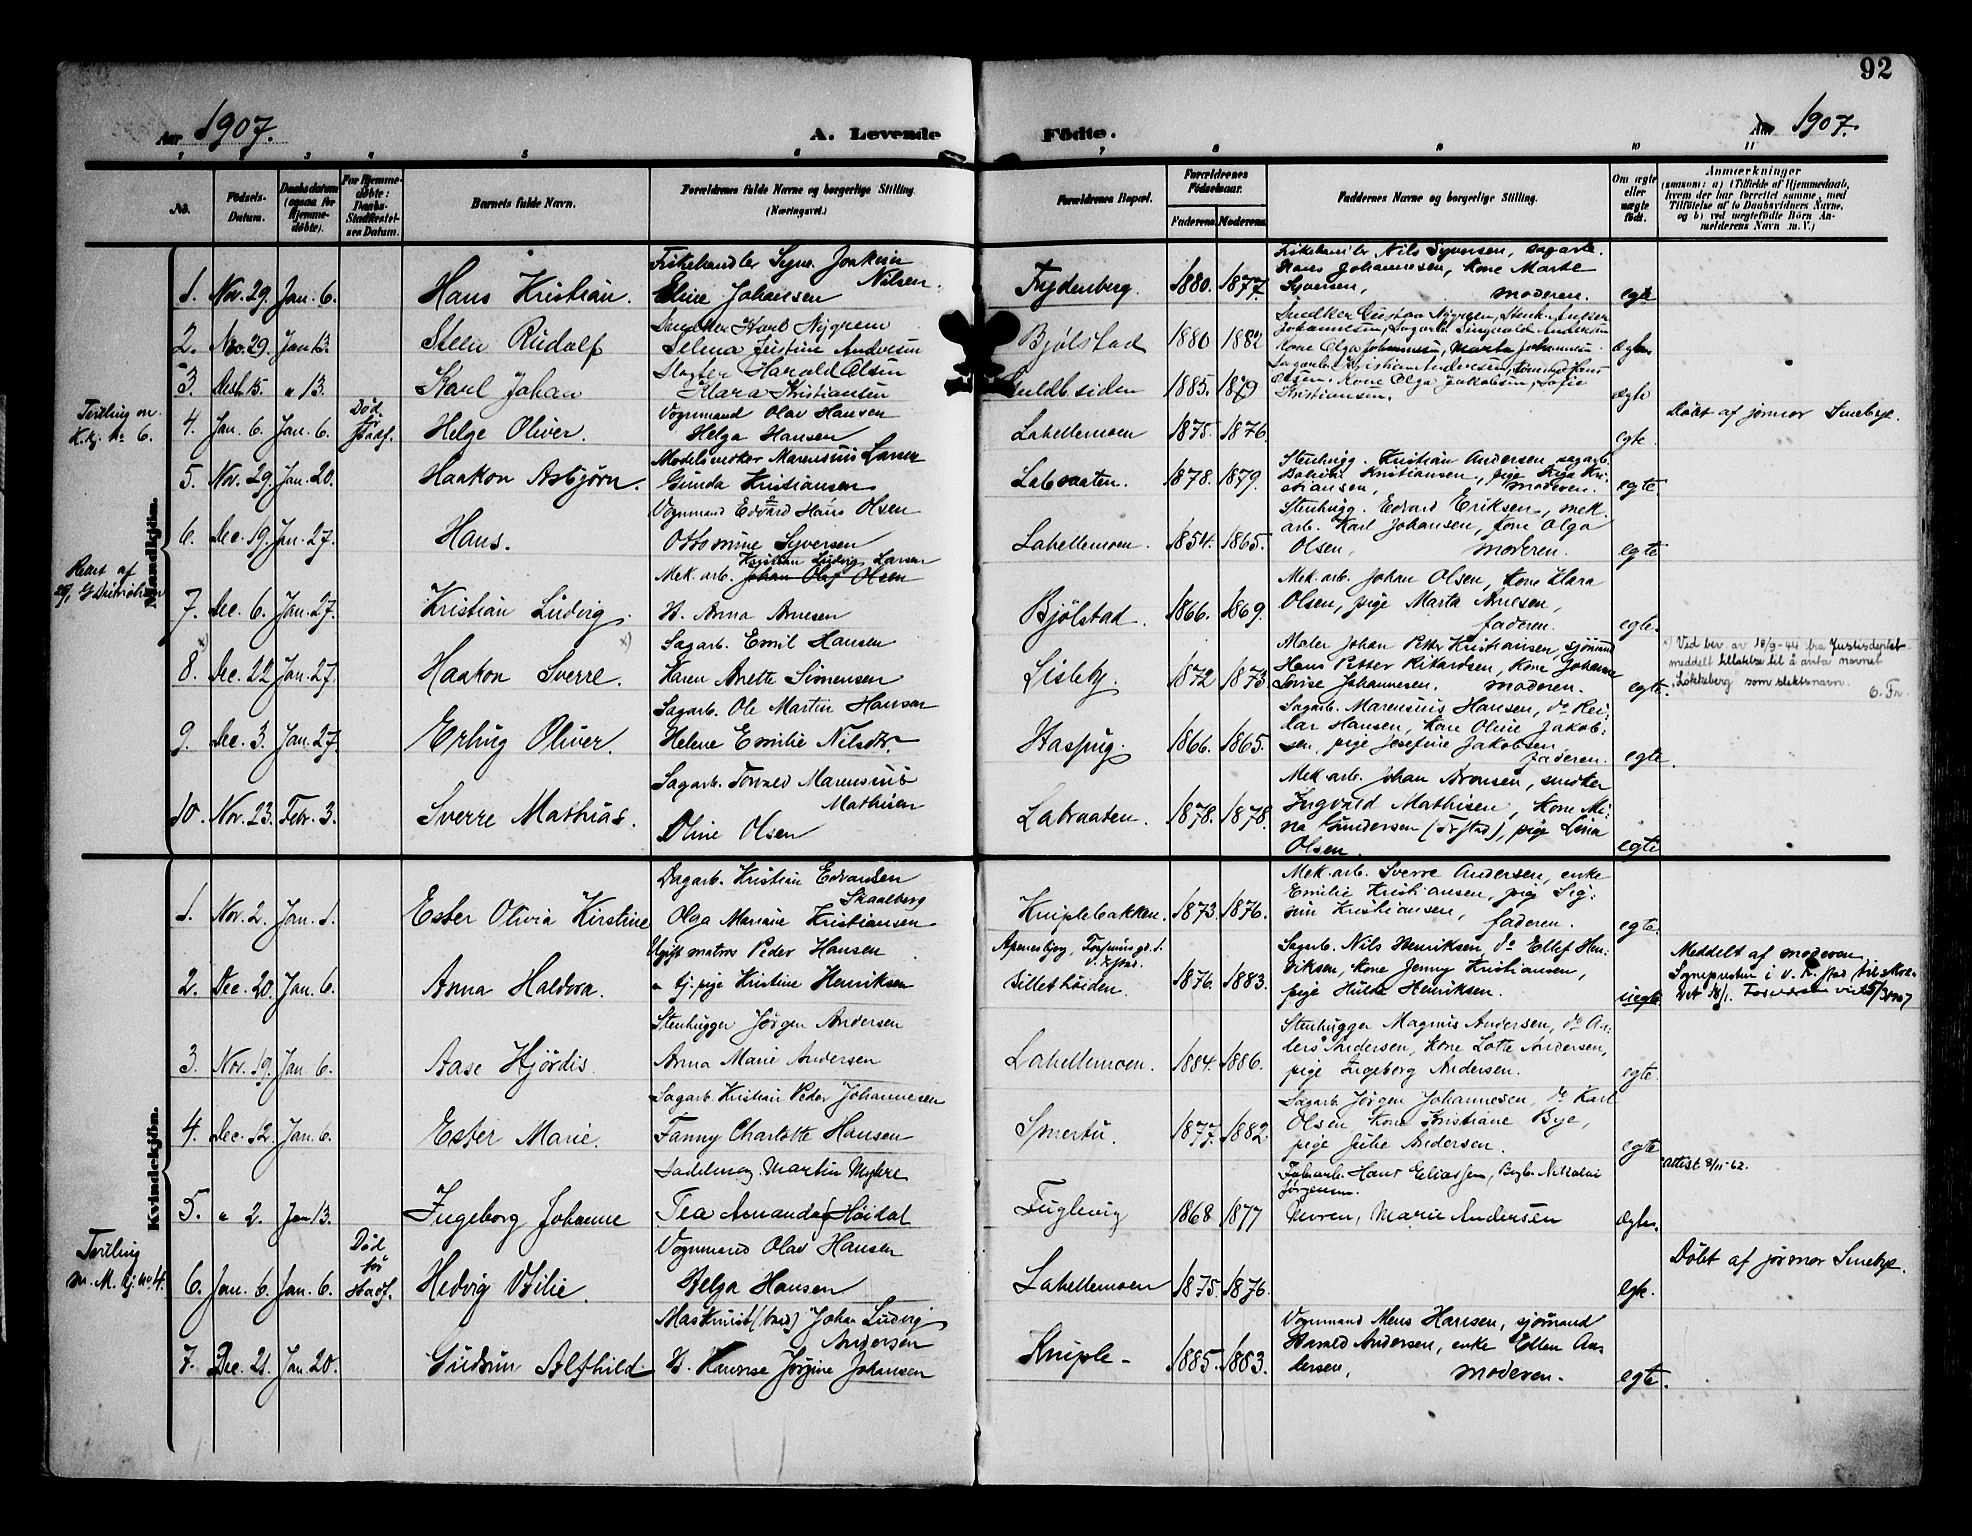 92
Aar 1907.
A. Levende
Födte.
Aar 1907.
1 2 3 4 5 6 7 8 9 10 11
No.
Födsels-Datum.
Daabsdatum (ogsaa for Hjemmedöbte).
For Hjemmedöbte: Daabs-Stadfæstelses Datum.
Barnets fulde Navn.
Forældrenes fulde Navne og borgerlige Stilling. (Næringsvei.)
Forældrenes Bopæl.
Forældrenes Födselsaar.
Faderens Moderens
Faddernes Navne og borgerlige Stilling.
Om ægte eller uægte födt.
Anmærkninger
(saasom: a) i Tilfælde af Hjemmedaab, hvem der har forrettet samme, med Tilföielse af to Daabsvidners Navne, og b) ved uægtefödte Börn Anmelderens Navn m. V.)
Mandkjön.
1. Nov. 29. Jan. 6. Hans Kristian. Fiskehandler Joakim Nilsen. Eline Johansen Frydenberg. 1880. 1877. Fiskehandler Nils Syversen, sagarb. Hans Johannesen, Kone Marte Syversen, moderen. egte
2. Nov. 29. Jan 13. Steen Rudolf Snedker Karl Nygren Selma Justine Andersen Bjølstad 1880 1882 Snedker Gustav Nygren, Johannesen, Sagarb. Andersen Kone Olga Johannesen, Marta Johannesen
3. Desb 15. " 13. Karl Johan Slagter Harald Olsen Klara Kristiansen 1885. 1879 Sagarb. Kristian Andersen, Olsen. Kone Olga Jakobsen, Sofie Kristiansen.
Tvilling m. K.kj. No 6.
4. Jan. 6. Jan. 6. Død før Stadf. Helge Oliver. Vognmand Olav Hansen Helga Hansen Labellemoen 1875. 1876. egte. Døbt af jormor Smeby.
5. Nov. 29. Jan. 20. Haakon Asbjørn. Modelsnedker Marensius Larsen Gunda Kristiansen Labraaten. 1878. 1879. Stenhugg. Kristian Andersen, sagarb. Kristiansen, pige Kristiansen, moderen. egte.
6. Dec. 19. Jan. 27. Hans. Vognmand Edvard Hans Olsen Ottomine Syversen Labellemoen. 1854. 1865. Stenhugg. Edvard Eriksen, mek. arb. Karl Johansen, Kone Olga Olsen, moderen. egte
7. Dec. 6. Jan. 27. Kristian Ludvig. Mek. arb. Kristian Ludvig Larsen Johan Olaf Olsen H. Anna Arnesen Bjølstad. 1866. 1869. Mek. arb. Johan Olsen, Kone Klara Olsen, pige Marta Arnesen, faderen. egte.
8. x) Dec. 22. Jan. 27. Haakon Sverre. x) Sagarb. Emil Hansen Karen Anette Simensen Lisleby. 1872 1873. Maler Johan Petter Kristiansen, sjømand Hans Petter Rikardsen, Kone Johanne Lovise Johannesen. moderen. egte.
x) Ved bev av 18/9-44 fra Justisdeptet meddelt tillatelse til å anta navnet "Løkkeberg" som slektsnavn. O. Fr.
9. Dec. 3. Jan. 27. Erling Oliver. Sagarb. Ole Martin Hansen Helene Emilie Nilsdtr. Haspug. 1866. 1865. Sagarb. Marensius Hansen, do Reidar Hansen, Kone Oline Jakobsen, pige Josefine Jakobsen, faderen. egte.
10. Nov. 23. Febr. 3. Sverre Mathias. Sagarb. Torvald Marensius Mathisen Oline Olsen Labraaten. 1878. 1878. Mek. arb. Johan Aronsen, snedker Ingvald Mathisen, Kone Mina Gundersen, pige Lina Olsen. egte
Kvindekjön.
1. Nov. 2. Jan. 1. Ester Olivia Kirstine Dagarb. Kristian Edvardsen Skaalberg Olga Mariane Kristiansen Kniplebakken. 1873. 1876. Mek. arb. Sverre Andersen, enke Emilie Kristiansen, pige Signe Kristiansen, faderen. egte.
2. Dec. 20. Jan. 6. Anna Haldora. Ugift matros Peder Hansen " tj. pige Kristine Henriksen Gillethöiden. 1876. 1883. Sagarb. Nils Henriksen, do Ellef Henriksen, Kone Jenny Kristiansen, pige Hulda Henriksen. uegte. Meddelt af moderen.
3. Nov. 19. Jan. 6. Aase Hjördis. Stenhugger Jørgen Andersen Anna Marie Andersen Labellemoen. 1884. 1886. Stenhugger Magnus Andersen, do Anders Andersen, Kone Lotte Andersen, pige Ingeborg Andersen. egte.
4. Dec. 12. Jan. 6. Ester Marie. Sagarb. Kristian Peder Johannesen Fanny Charlotte Hansen Smertu. 1877. 1882. Sagarb. Jørgen Johannesen, do Karl Olsen Kone Kristiane Bye, pige Julie Andersen. egte
5. " 2. Jan 13. Ingeborg Johanne Sadelmag Martin Myhre Tea Amanda Höidal Fuglevig 1868 1877 Fabarb. Hans Eliassen, Jørgensen. Marie Andersen attest 8/11-62.
Tvilling m. M. kj. no 4.
6. Jan. 6. Jan. 6. Død før Stadf. Hedvig Otilie. Vognmand Olav Hansen Helga Hansen Labellemoen 1875. 1876. egte. Døbt af jormor Smeby.
7. Dec. 21. Jan. 20. Gudrun Alfhild Maskinist Johan Ludvig Andersen H. Jørgine Johansen Kniple 1885. 1883. Vognmand Mens Hansen, sjømand Harald Andersen, enke Ellen Andersen, moderen. egte.